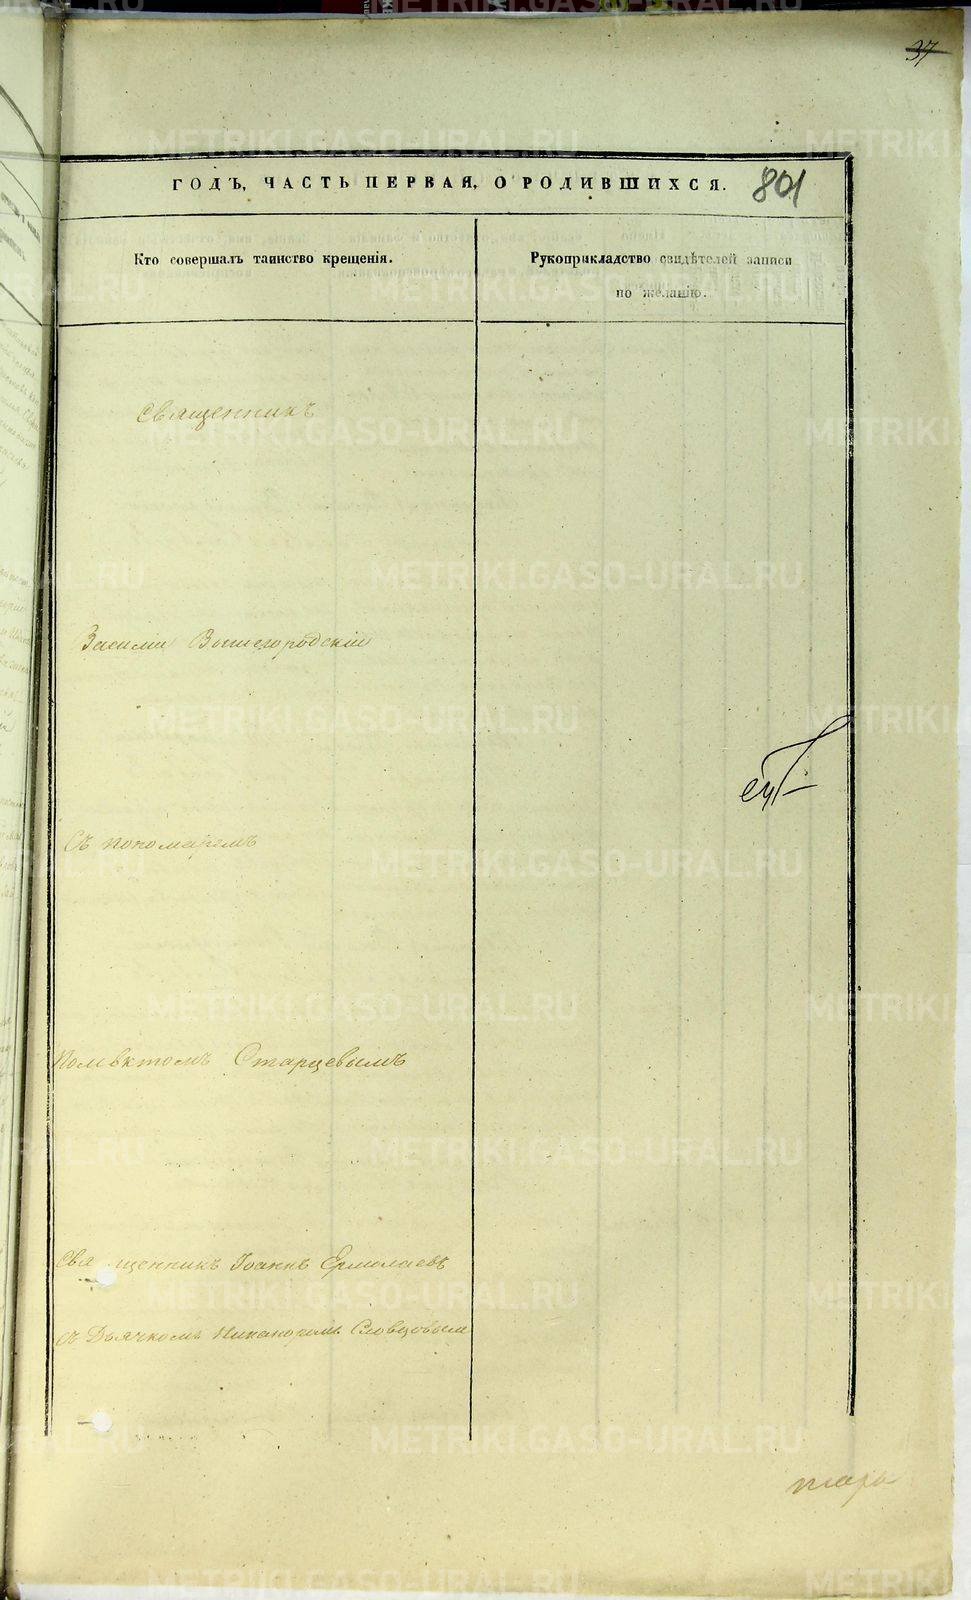 37
ГОДЪ, ЧАСТЬ ПЕРВАЯ, О РОДИВШИХСЯ. 801
Кто совершалъ таинство крещенія.
Рукоприкладство свидѣтелей записи
по желанію.
Священникъ
Василій Вышегородскій
Съ пономаремъ
Поливктомъ Старцевымъ
Священникъ Іоаннъ Ермолаевъ
съ Дьячкомъ Никаноромъ Словцовым
METRIKI.GASO-URAL.RU